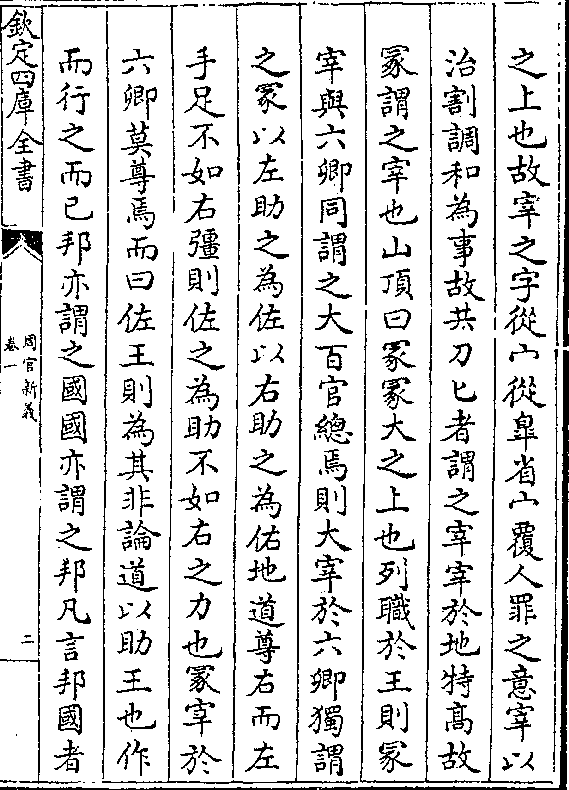 之上也故宰之字從宀從辠省宀覆人罪之意宰以
治割調和為事故共刀匕者謂之宰宰於地特高故
冡謂之宰也山頂曰冡冡大之上也列職於王則冡
宰與六卿同謂之大百官總焉則大宰於六卿獨謂
之冡以左助之為佐以右助之為佑地道尊右而左
手足不如右彊則佐之為助不如右之力也冡宰於
六卿莫尊焉而曰佐王則為其非論道以助王也作
而行之而已邦亦謂之國國亦謂之邦凡言邦國者
欽定四庫全書
周官新義
卷一
二